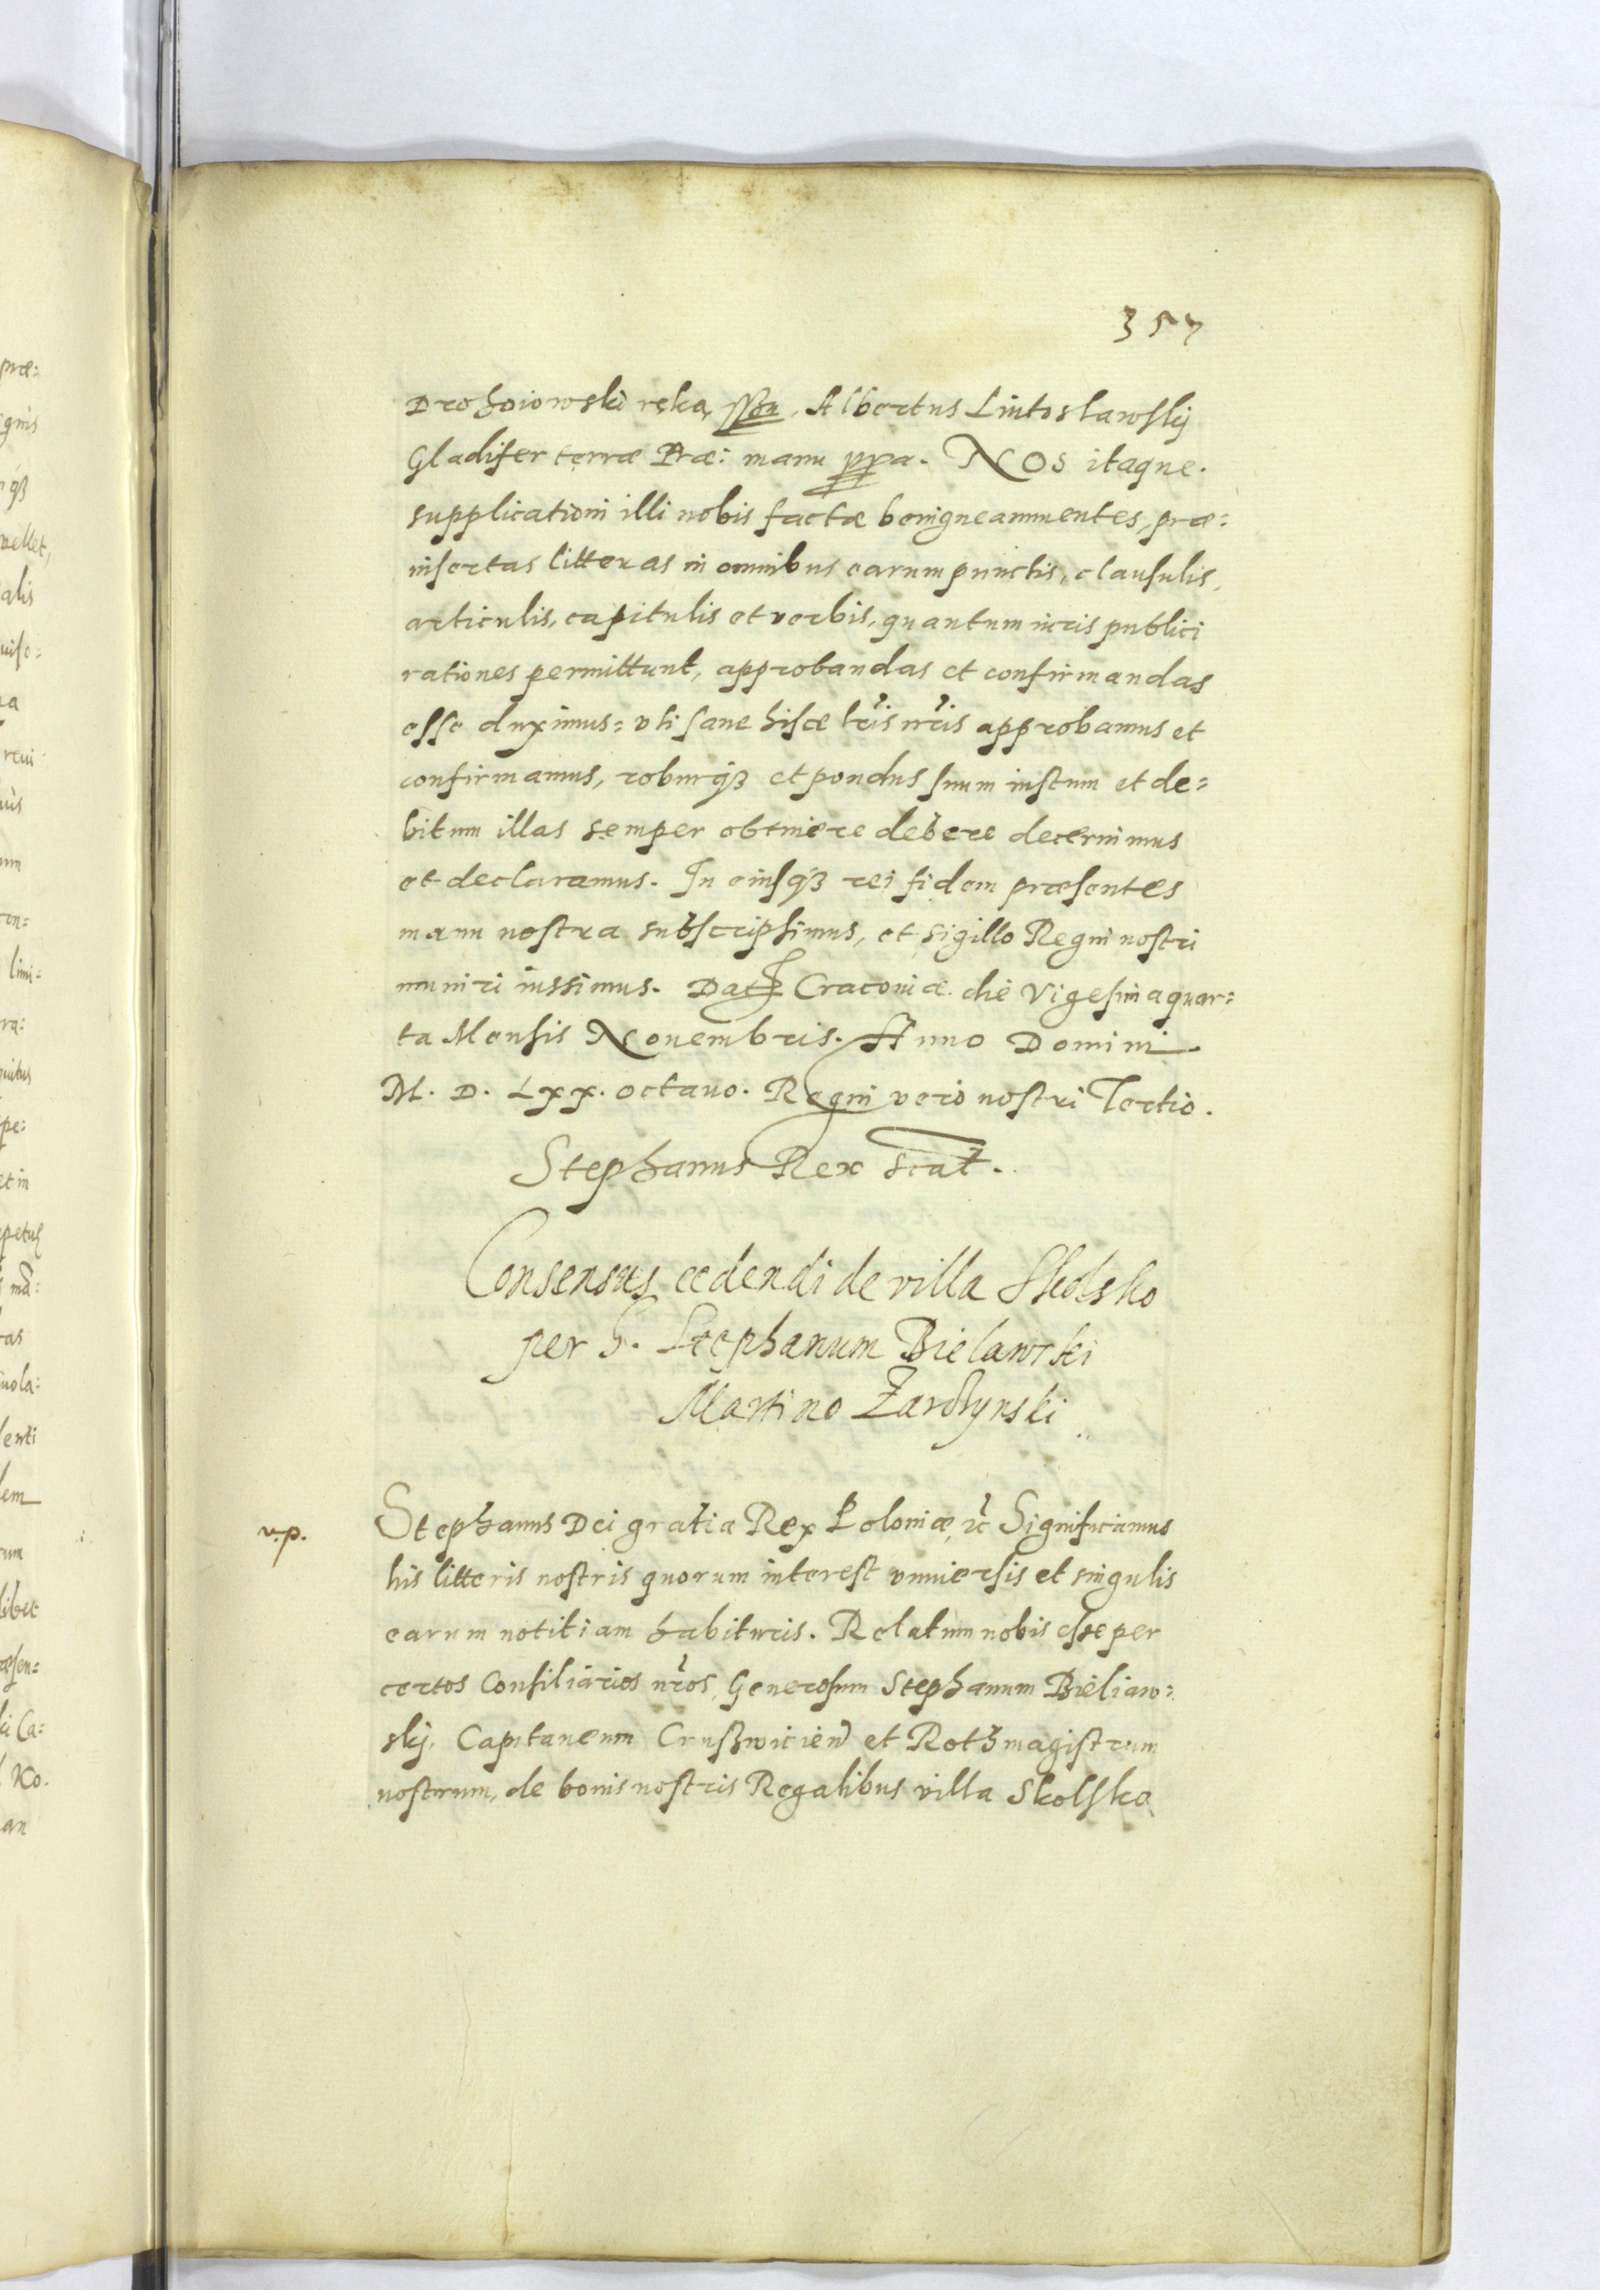 357
Drohoiowski ręką ssn. Albertus Lintoslawskij
Gladifer terræ Præ: manu ppa. NOS itaque.
supplicationi illi nobis factæ benigne annuentes, præ=
insertas litteras in omnibus earum punctis, clausulis,
articulis, capitulis et verbis, quantum iuris publici
rationes permittunt, approbandas et confirmandas
esse duximus: vti sane hisce lr̃is nr̃is approbamus et
confirmamus, roburqȝ et pondus suum iustum et de=
bitum illas semper obtinere debere decernimus
et declaramus. In cuiusqȝ rei fidem præsentes
manu nostra subscripsimus, et sigillo Regni nostri
muniri iussimus. Dat Cracouiæ die Vigesima quar=
ta Mensis Nouembris. Anno Domini
M. D. Lxx. octauo. Regni vero nostri Tertio.
Stephanus Rex scat̃.
Consensus cedendi de villa Skolsko
per G. Stephanum Bielawski
Martino Zardzynski
v.p.
Stephanus Dei gratia Rex Poloniæ, ⁊c̃ Significamus
his litteris nostris quorum interest vniuersis et singulis
earum notitiam habituris. Relatum nobis esse per
certos Consiliarios nr̃os, Generosum Stephanum Bieliaw=
skij, Capitaneum Crusswicień et Rothmagistrum
nostrum, de bonis nostris Regalibus villa Skolsko